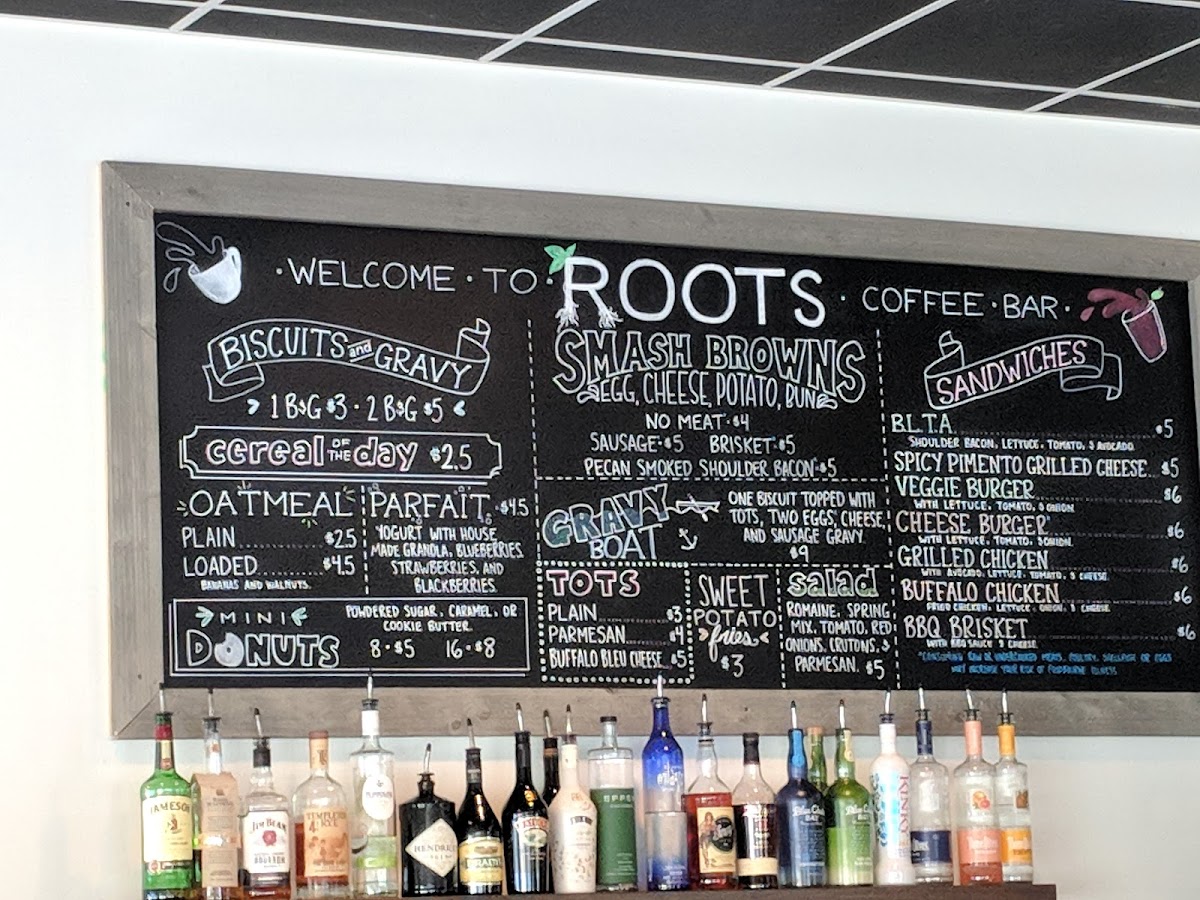 ·WELCOME·TO·ROOTS·COFFEE·BAR·
BISCUITS and GRAVY
1 B&G $3 · 2 B&G $5
cereal OF THE day $2.5
OATMEAL
PLAIN $2.5
LOADED $4.5
BANANAS AND WALNUTS
PARFAIT $4.5
YOGURT WITH HOUSE
MADE GRANOLA, BLUEBERRIES,
STRAWBERRIES, AND
BLACKBERRIES
MINI
DONUTS
POWDERED SUGAR, CARAMEL, OR
COOKIE BUTTER
8 · $5 16 · $8
SMASH BROWNS
EGG, CHEESE, POTATO, BUN
NO MEAT · $4
SAUSAGE · $5 BRISKET · $5
PECAN SMOKED SHOULDER BACON · $5
GRAVY
BOAT
ONE BISCUIT TOPPED WITH
TOTS, TWO EGGS, CHEESE,
AND SAUSAGE GRAVY
$9
TOTS
PLAIN $3
PARMESAN $4
BUFFALO BLEU CHEESE $5
SWEET
POTATO
fries
$3
salad
ROMAINE, SPRING
MIX, TOMATO, RED
ONIONS, CRUTONS, &
PARMESAN. $5
SANDWICHES
B.L.T.A. $5
SHOULDER BACON, LETTUCE, TOMATO, & AVOCADO
SPICY PIMENTO GRILLED CHEESE $5
VEGGIE BURGER $6
WITH LETTUCE, TOMATO, & ONION
CHEESE BURGER $6
WITH LETTUCE, TOMATO, & ONION
GRILLED CHICKEN $6
WITH AVOCADO, LETTUCE, TOMATO, & CHEESE
BUFFALO CHICKEN $6
FRIED CHICKEN, LETTUCE, ONION, & CHEESE
BBQ BRISKET $6
WITH BBQ SAUCE & CHEESE
*CONSUMING RAW OR UNDERCOOKED MEATS, POULTRY, SHELLFISH OR EGGS
MAY INCREASE YOUR RISK OF FOODBORNE ILLNESS
JAMESON
JIM BEAM
BOURBON
TEMPLETON
RYE
HENDRICK'S
EFFEN